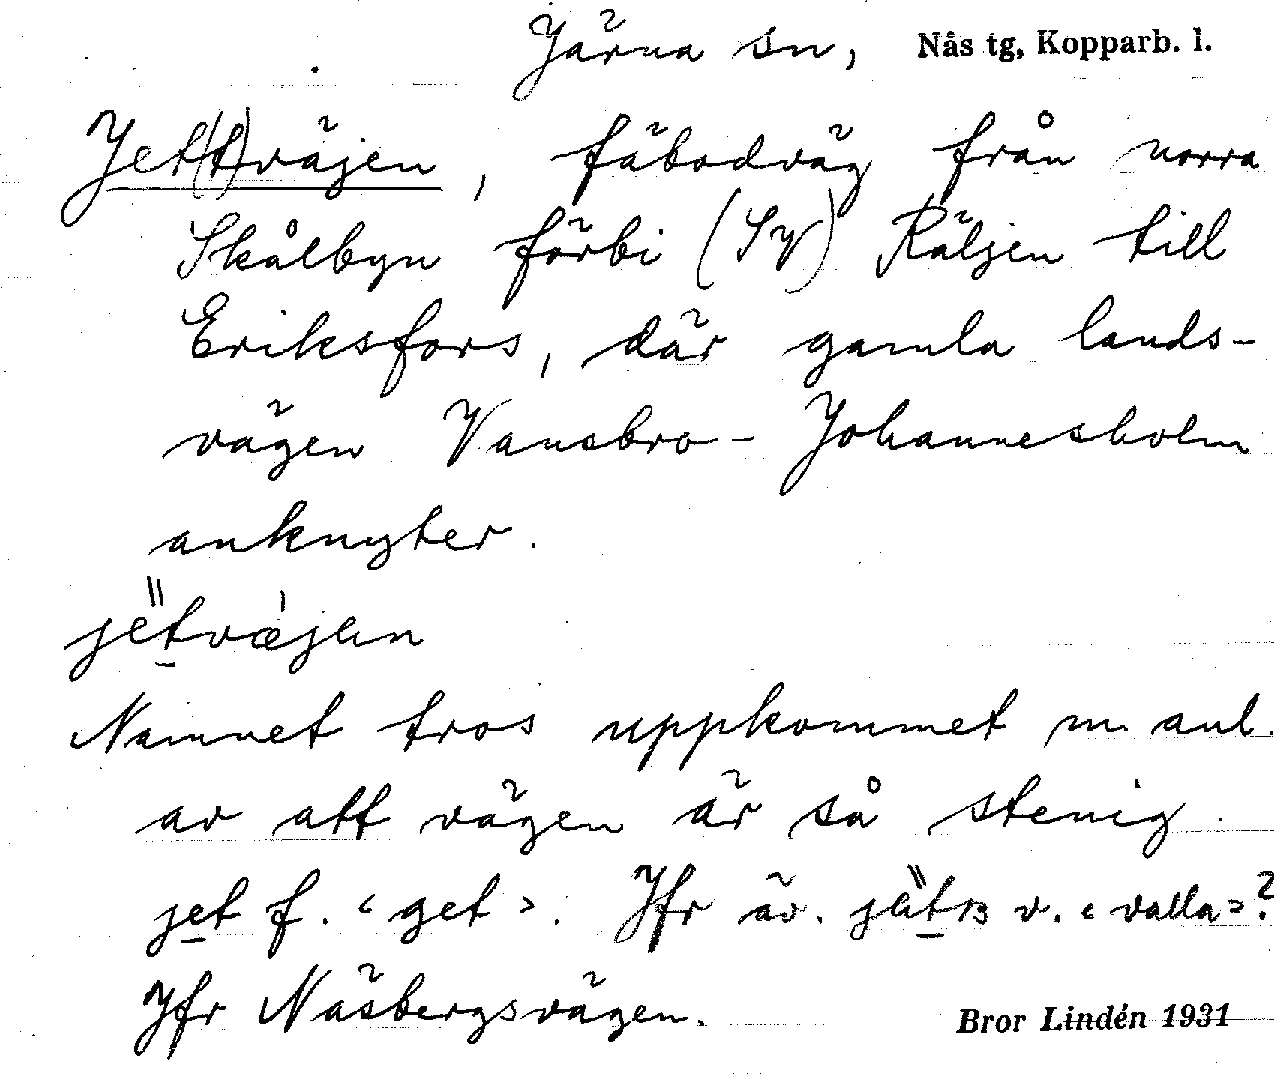 Järna sn, Nås tg, Kopparb. l.
Jet(t)väjen, fäbodväg från norra
Skålbyn förbi (Sy) Räljen till
Eriksfors, där gamla lands-
vägen Vansbro - Johannesholm
anknyter.
jetvæjen
Namnet tros uppkommet m. anl.
av att vägen är så stenig.
jet f. "get". Jfr äv. v. "valla"?
Jfr Näsbergsvägen.
Bror Lindén 1931